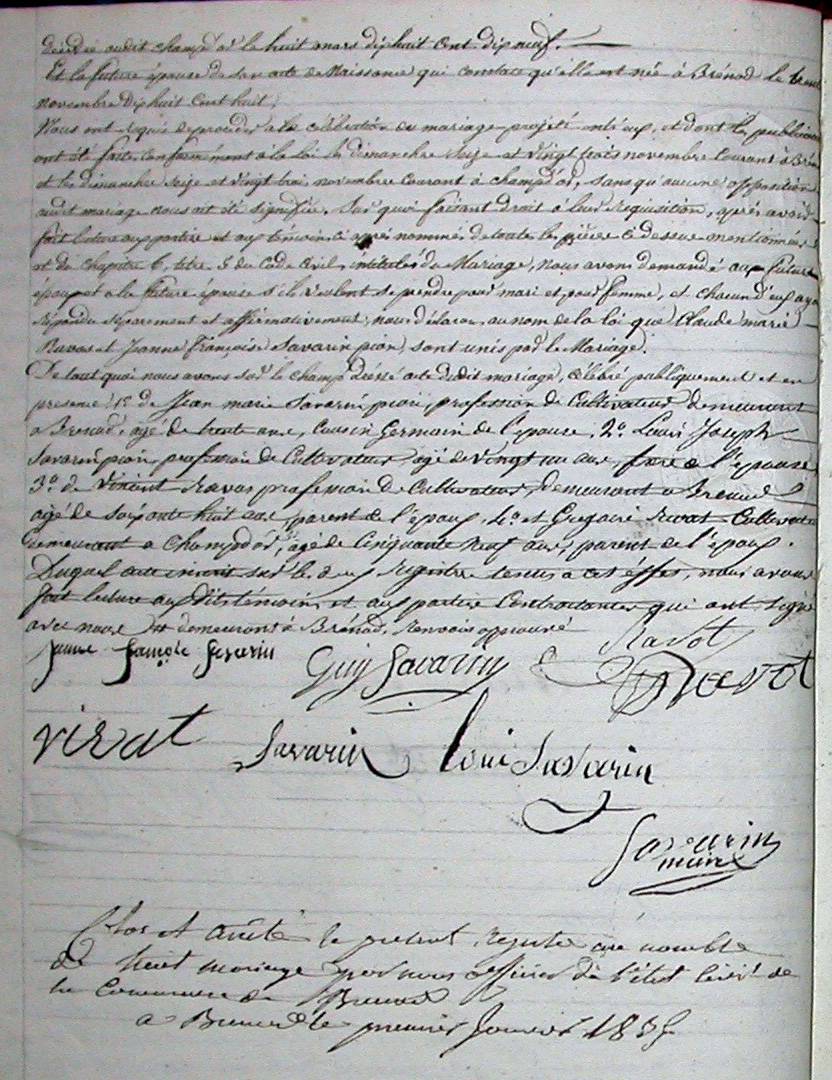 décédée audit champd'or le huit mars dix huit cent dix neuf.
Et la future épouse de son acte de Naissance qui constate qu'elle est née à Brénod le
novembre dix huit cent huit;
Nous ont requis de proceder a la célébration du mariage projeté entr'eux, et dont les publications
ont été faites conformément à la loi les dimanches seize et vingt trois novembre courant à
et les dimanches seize et vingt trois novembre courant à champd'or, sans qu'aucune opposition
audit mariage nous ait été signifiée. Sur quoi faisant droit à leur requisition, après avoir
fait lecture aux parties et aux témoins ci après nommés de toutes les pièces ci dessus mentionnées
et du chapitre 6, titre 5 du Code civil, intitulés du Mariage, nous avons demandé au futur
époux et a la future épouse s'ils veulent se prendre pour mari et pour femme, et chacun d'eux ayant
répondu séparement et affirmativement, nous déclarons au nom de la loi que Claude marie
Ravas et Jeanne françoise Savarin pion, sont unis par le Mariage.
De tout quoi nous avons sur le champ dressé acte dudit mariage, célébré publiquement et en
presence 1º de Jean marie Savarin pion, profession de Cultivateur demeurant
a Brenod, agé de trente ans, Cousin Germain de l'epouse, 2º Louis Joseph
Savarin pion profession de Cultivateur, agé de vingt un ans, frere de l'epouse,
3º de Vincent Ravas profession de Cultivateur, demeurant a Brenod
agé de soixante huit ans, parent de l'epoux, 4º et Gregoire Cultivateur
demeurant a Champd'or, agé de Cinquante neuf ans, parent de l'époux.
Duquel acte inscrit sur les deux Registres tenus a cet effet, nous avons
fait lecture aux dits témoins et aux parties Contractantes qui ont signé
avec nous demeurant à Brénod, Renvois approuvé
Jeanne françoise Savarin
Guy Savarin
Ravot
Ravot
Savarin
Louis Savarin
Savarin
maire
Clos et arrêté le present registre au nombre
de huit mariage par nous officier de l'état civil de
la Commune de Brenod
a Brenod le premier Janvier